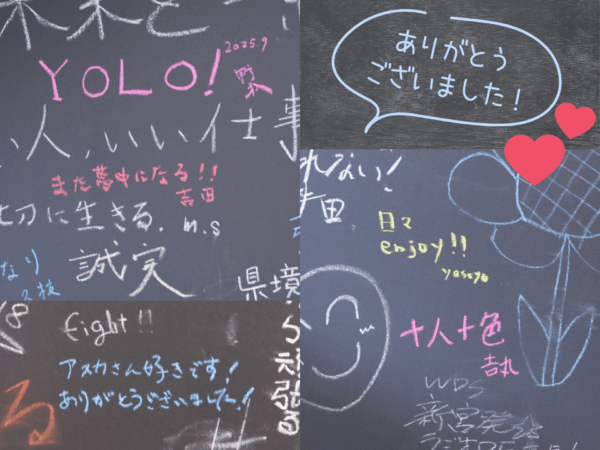 未来を
2025.9
YOLO!
い人、いい仕事
また夢中になる!!
吉田
切に生きる.
M.S
なり
誠実
県境
ありがとう
ございました!
れない!
日々
enjoy!!
十人十色
Fight!!
アスカさん好きです!
ありがとうございました!
る
頑張る
WDS